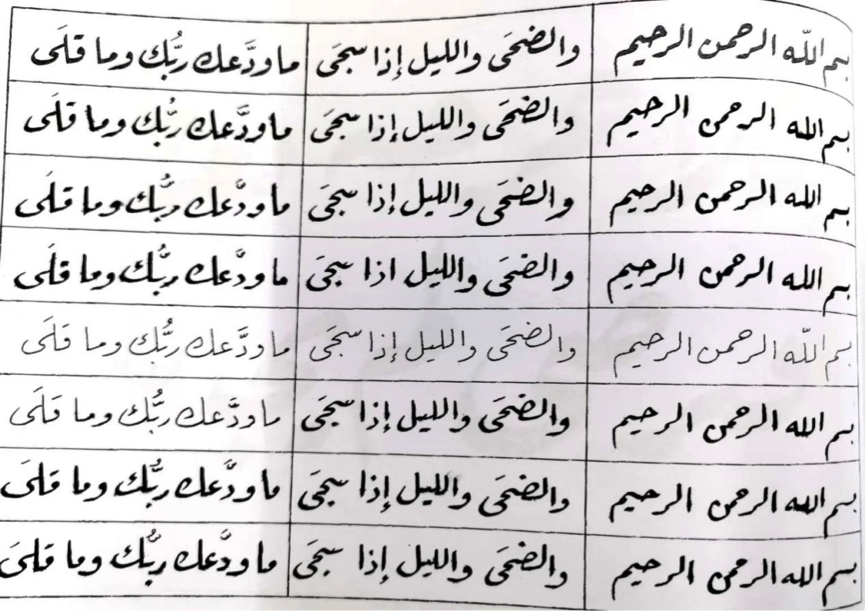 بسم اللّه الرحمن الرحيم والضحَى والليل إذا سجَى ما ودَّعك ربُّك وما قلَى
بسم الله الرحمن الرحيم والضحَى والليل إذا سجَى ما ودَّعك ربُّك وما قلَى
بسم الله الرحمن الرحيم والضحَى والليل إذا سجَى ما ودَّعك ربُّك وما قلَى
بسم الله الرحمن الرحيم والضحَى والليل اذا سجَى ما ودَّعك ربُّك وما قلَى
بسم اللّه الرحمن الرحيم والضحَى والليل إذا سجَى ما ودَّعك ربُّك وما قلَى
بسم الله الرحمن الرحيم والضحَى والليل إذا سجَى ما ودَّعك ربُّك وما قلَى
بسم الله الرحمن الرحيم والضحَى والليل إذا سجَى ما ودَّعك ربُّك وما قلَى
بسم الله الرحمن الرحيم والضحَى والليل إذا سجَى ما ودَّعك ربُّك وما قلَى